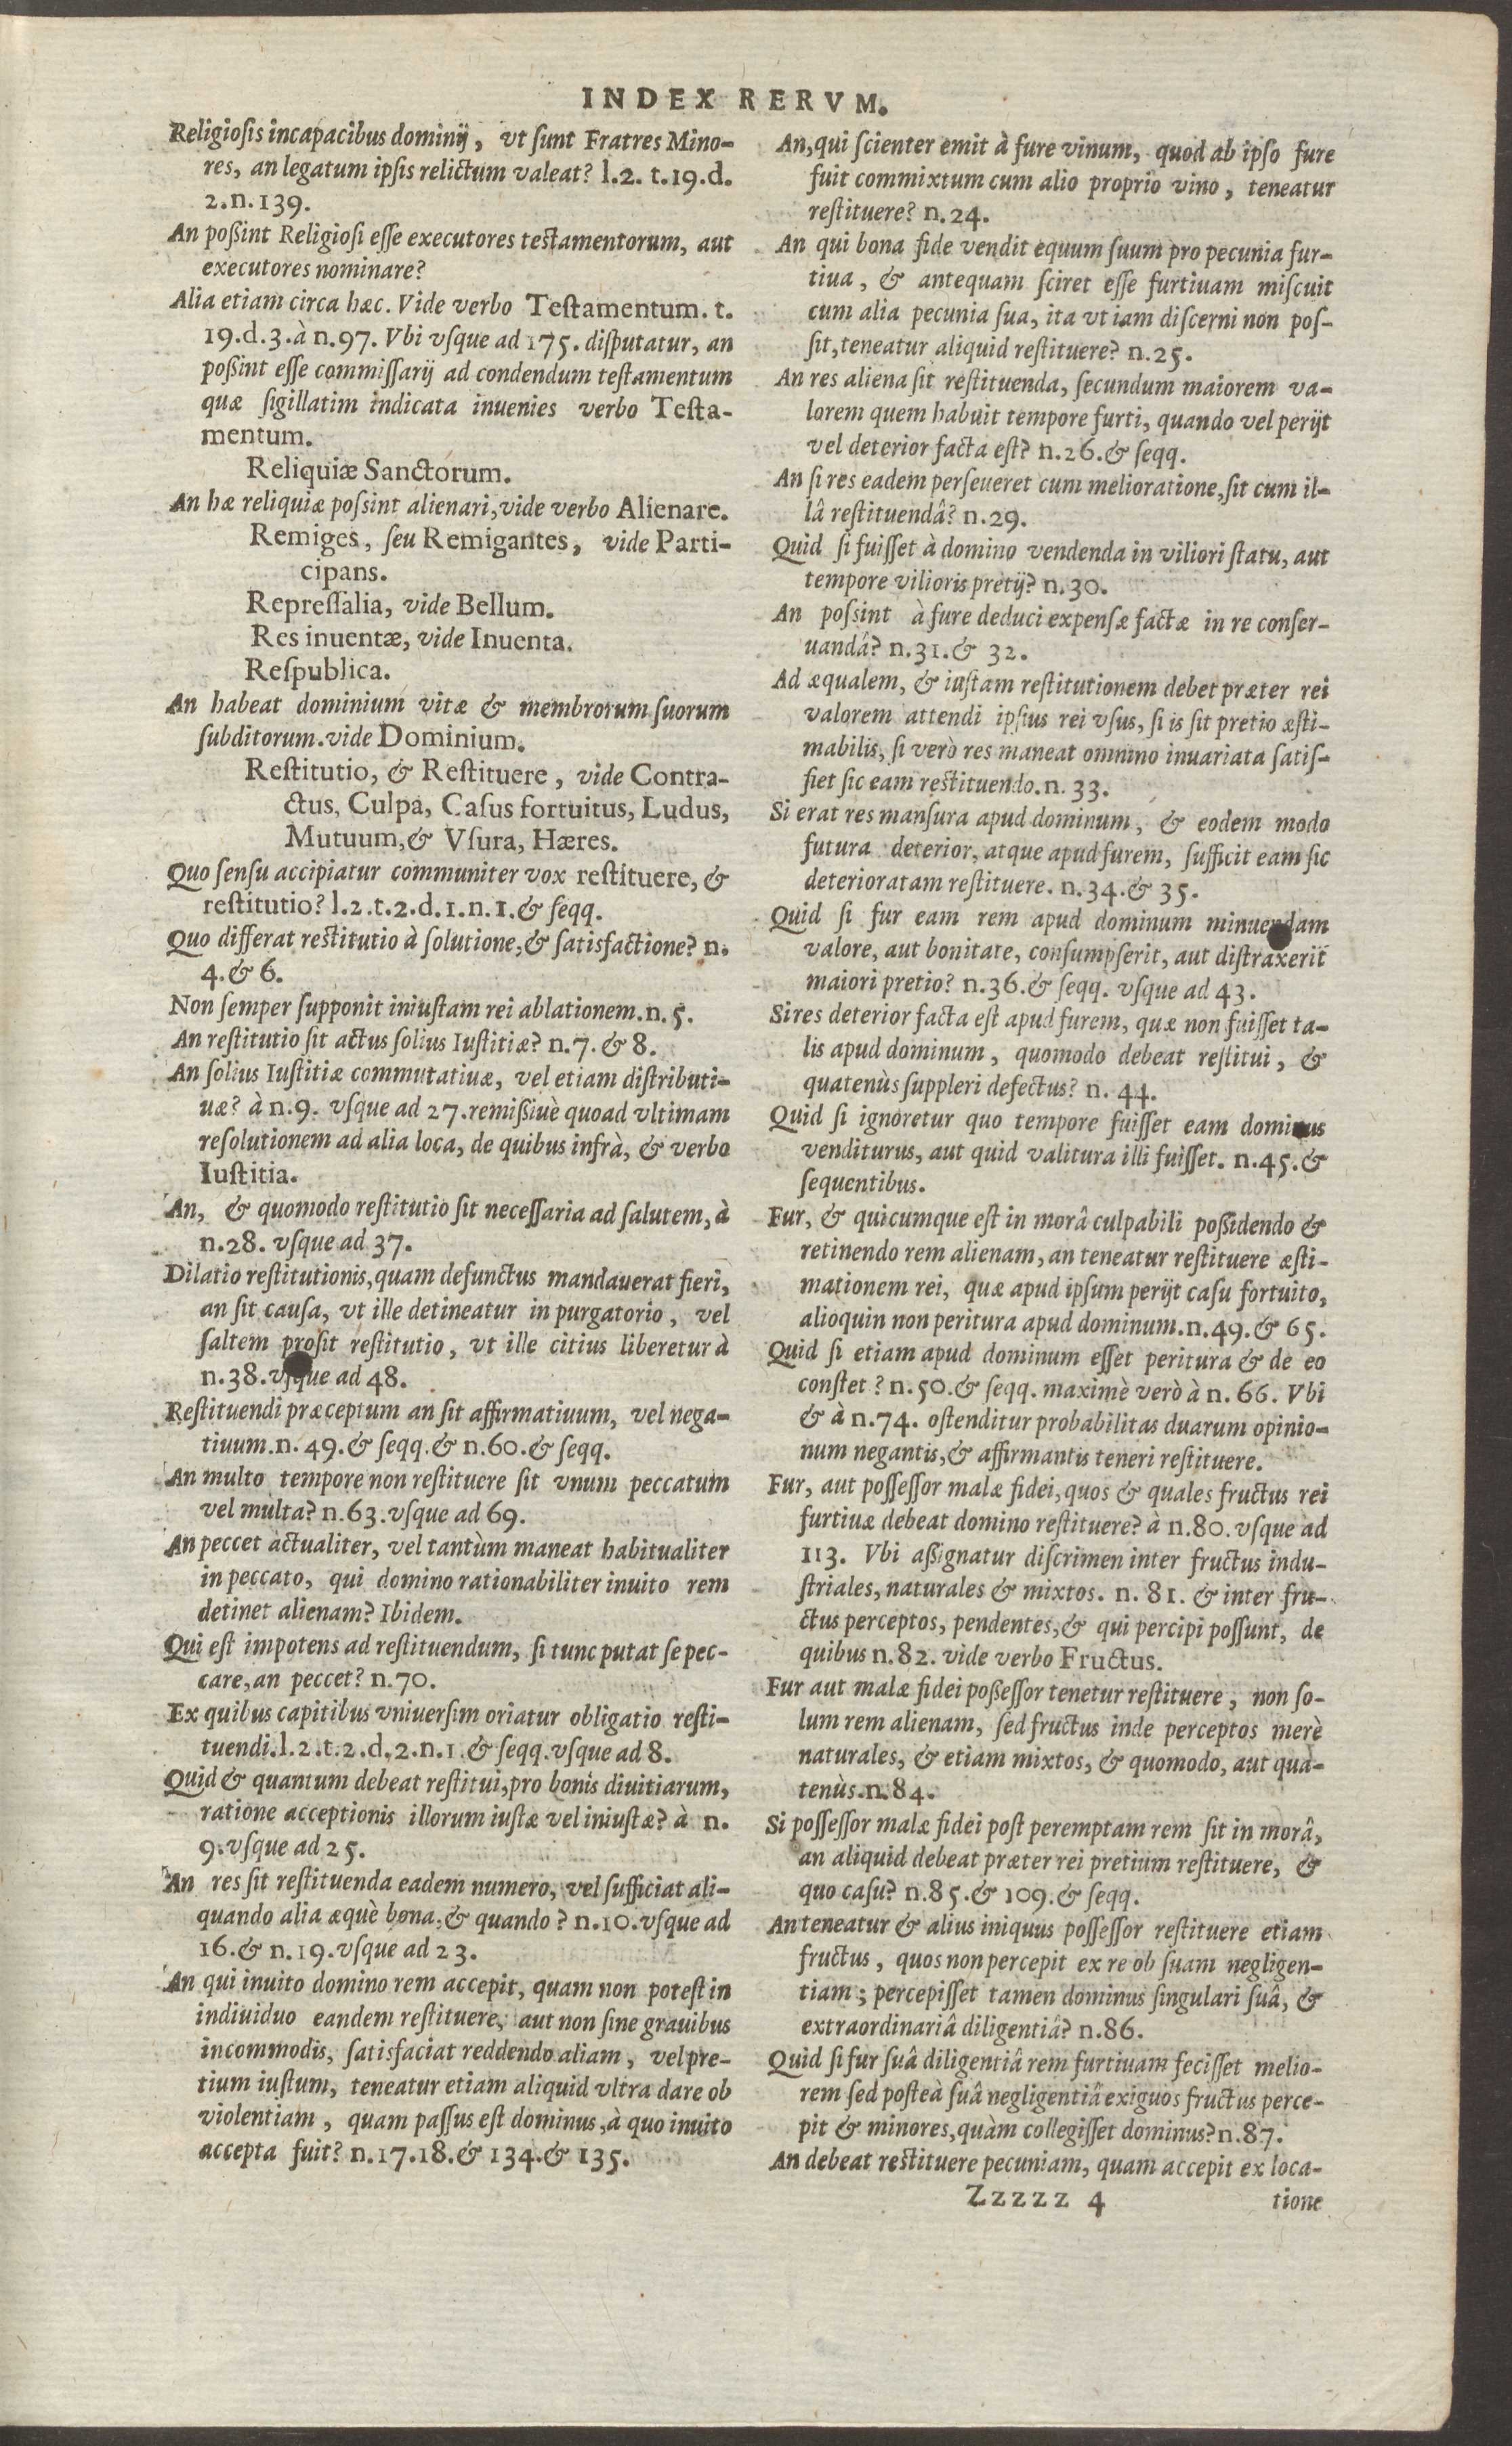 INDEX RERVM.
Religiosis incapacibus dominij, vt sunt Fratres Mino-
res, an legatum ipsis relictum valeat? l.2. t.19.d.
2.n.139.
An poßint Religiosi esse executores testamentorum, aut
executores nominare?
Alia etiam circa hæc. Vide verbo Testamentum. t.
19.d.3.à n.97. Vbi vsque ad 175. disputatur, an
poßint esse commissarij ad condendum testamentum
quæ sigillatim indicata inuenies verbo Testa-
mentum.
Reliquiæ Sanctorum.
An hæ reliquiæ possint alienari, vide verbo Alienare.
Remiges, seu Remigantes, vide Parti-
cipans.
Repressalia, vide Bellum.
Res inuentæ, vide Inuenta.
Respublica.
An habeat dominium vitæ & membrorum suorum
subditorum. vide Dominium.
Restitutio, & Restituere, vide Contra-
ctus, Culpa, Casus fortuitus, Ludus,
Mutuum, & Vsura, Hæres.
Quo sensu accipiatur communiter vox restituere, &
restitutio? l.2.t.2.d.1.n.1.& seqq.
Quo differat restitutio à solutione, & satisfactione? n.
4.& 6.
Non semper supponit iniustam rei ablationem.n.5.
An restitutio sit actus solius Iustitiæ? n.7.& 8.
An solius Iustitiæ commutatiuæ, vel etiam distributi-
uæ? à n.9. vsque ad 27. remißiuè quoad vltimam
resolutionem ad alia loca, de quibus infrà, & verbo
Iustitia.
An, & quomodo restitutio sit necessaria ad salutem, à
n.28. vsque ad 37.
Dilatio restitutionis, quam defunctus mandauerat fieri,
an sit causa, vt ille detineatur in purgatorio, vel
saltem prosit restitutio, vt ille citius liberetur à
n.38.vsque ad 48.
Restituendi præceptum an sit affirmatiuum, vel nega-
tiuum.n.49.& seqq.& n.60.& seqq.
An multo tempore non restituere sit vnum peccatum
vel multa? n.63.vsque ad 69.
An peccet actualiter, vel tantùm maneat habitualiter
in peccato, qui domino rationabiliter inuito rem
detinet alienam? Ibidem.
Qui est impotens ad restituendum, si tunc putat se pec-
care, an peccet? n.70.
Ex quibus capitibus vniuersim oriatur obligatio resti-
tuendi.l.2.t.2.d.2.n.1.& seqq.vsque ad 8.
Quid & quantum debeat restitui, pro bonis diuitiarum,
ratione acceptionis illorum iustæ vel iniustæ? à n.
9.vsque ad 25.
An res sit restituenda eadem numero, vel sufficiat ali-
quando alia æquè bona, & quando? n.10.vsque ad
16.& n.19.vsque ad 23.
An qui inuito domino rem accepit, quam non potest in
indiuiduo eandem restituere, aut non sine grauibus
incommodis, satisfaciat reddendo aliam, vel pre-
tium iustum, teneatur etiam aliquid vltra dare ob
violentiam, quam passus est dominus, à quo inuito
accepta fuit? n.17.18.& 134.& 135.
An, qui scienter emit à fure vinum, quod ab ipso fure
fuit commixtum cum alio proprio vino, teneatur
restituere? n.24.
An qui bona fide vendit equum suum pro pecunia fur-
tiua, & antequam sciret esse furtiuam miscuit
cum alia pecunia sua, ita vt iam discerni non pos-
sit, teneatur aliquid restituere? n.25.
An res aliena sit restituenda, secundum maiorem va-
lorem quem habuit tempore furti, quando vel perijt
vel deterior facta est? n.26.& seqq.
An si res eadem perseueret cum melioratione, sit cum il-
lâ restituendâ? n.29.
Quid si fuisset à domino vendenda in viliori statu, aut
tempore vilioris pretij? n.30.
An possint à fure deduci expensæ factæ in re conser-
uandâ? n.31.& 32.
Ad æqualem, & iustam restitutionem debet præter rei
valorem attendi ipsius rei vsus, si is sit pretio æsti-
mabilis, si verò res maneat omnino inuariata satis-
fiet sic eam restituendo.n. 33.
Si erat res mansura apud dominum, & eodem modo
futura deterior, atque apud furem, sufficit eam sic
deterioratam restituere. n.34.& 35.
Quid si fur eam rem apud dominum minuendam
valore, aut bonitate, consumpserit, aut distraxerit
maiori pretio? n.36.& seqq. vsque ad 43.
Si res deterior facta est apud furem, quæ non fuisset ta-
lis apud dominum, quomodo debeat restitui, &
quatenùs suppleri defectus? n. 44.
Quid si ignoretur quo tempore fuisset eam dominus
venditurus, aut quid valitura illi fuisset. n.45.&
sequentibus.
Fur, & quicumque est in morâ culpabili poßidendo &
retinendo rem alienam, an teneatur restituere æsti-
mationem rei, quæ apud ipsum perijt casu fortuito,
alioquin non peritura apud dominum.n.49.& 65.
Quid si etiam apud dominum esset peritura & de eo
constet? n.50.& seqq. maximè verò à n. 66. Vbi
& à n.74. ostenditur probabilitas duarum opinio-
num negantis, & affirmantis teneri restituere.
Fur, aut possessor malæ fidei, quos & quales fructus rei
furtiuæ debeat domino restituere? à n.80.vsque ad
113. Vbi aßignatur discrimen inter fructus indu-
striales, naturales & mixtos. n. 81. & inter fru-
ctus perceptos, pendentes, & qui percipi possunt, de
quibus n.82. vide verbo Fructus.
Fur aut malæ fidei poßessor tenetur restituere, non so-
lum rem alienam, sed fructus inde perceptos merè
naturales, & etiam mixtos, & quomodo, aut qua-
tenùs.n.84.
Si possessor malæ fidei post peremptam rem sit in morâ,
an aliquid debeat præter rei pretium restituere, &
quo casu? n.85.& 109.& seqq.
An teneatur & alius iniquus possessor restituere etiam
fructus, quos non percepit ex re ob suam negligen-
tiam; percepisset tamen dominus singulari suâ, &
extraordinariâ diligentiâ? n.86.
Quid si fur suâ diligentiâ rem furtiuam fecisset melio-
rem sed posteà suâ negligentiâ exiguos fructus perce-
pit & minores, quàm collegisset dominus? n.87.
An debeat restituere pecuniam, quam accepit ex loca-
Zzzzz 4 tione